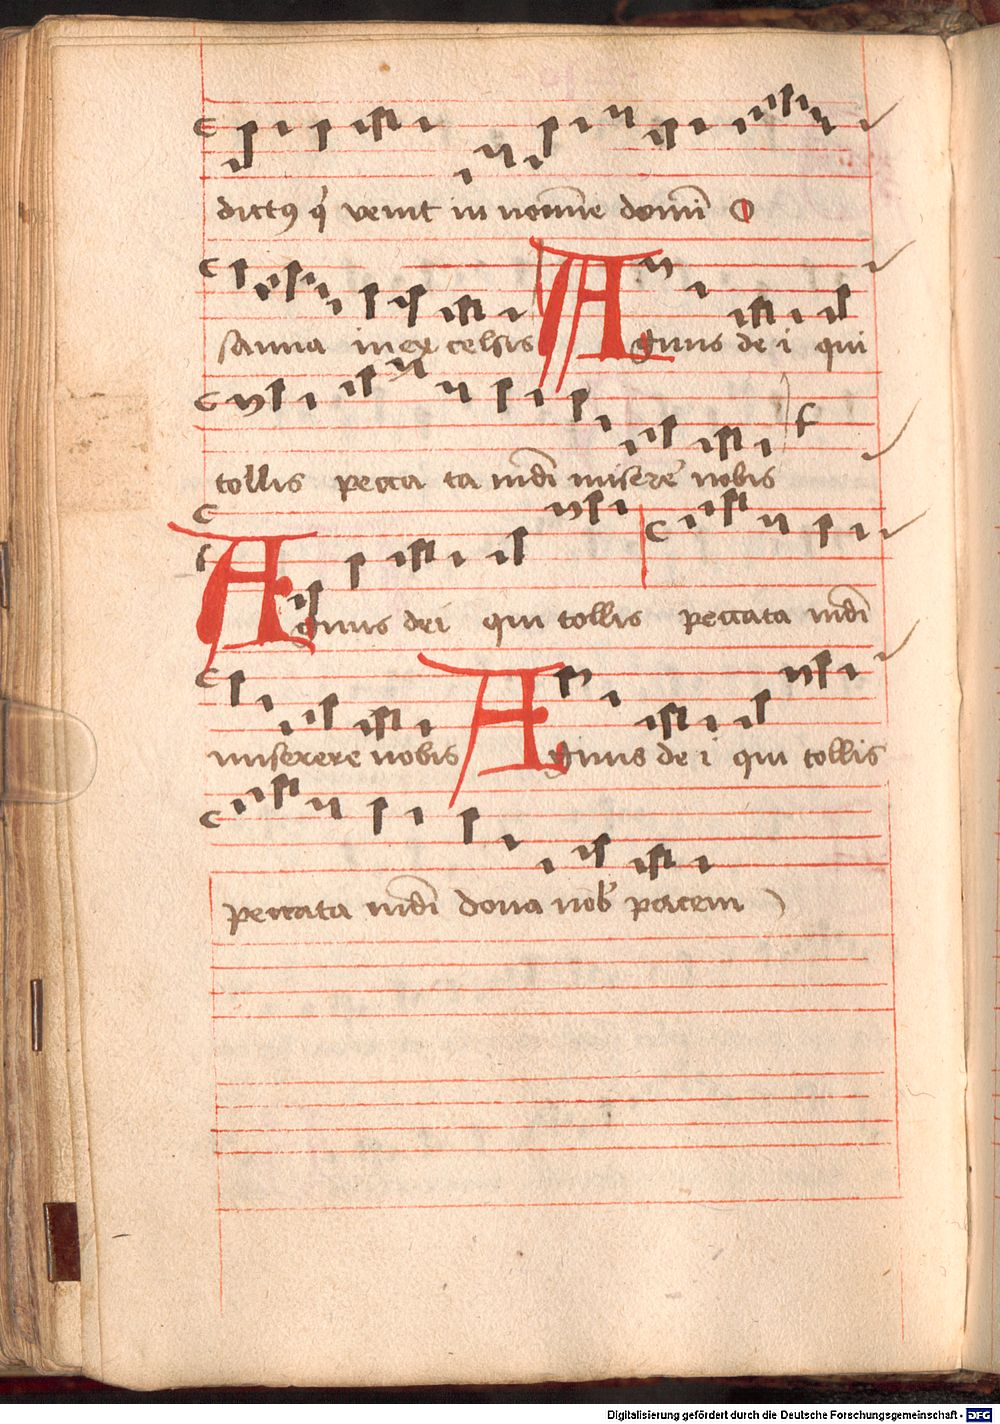 dictꝰ q̇ venit in nomīe domīi O
sanna in ex celsis Agnus de i qui
tollis pecca ta mūdi miserē nobis
Agnus dei qui tollis peccata mūdi
miserere nobis Agnus de i qui tollis
peccata mūdi dona nob̓ pacem
Digitalisierung gefördert durch die Deutsche Forschungsgemeinschaft - DFG